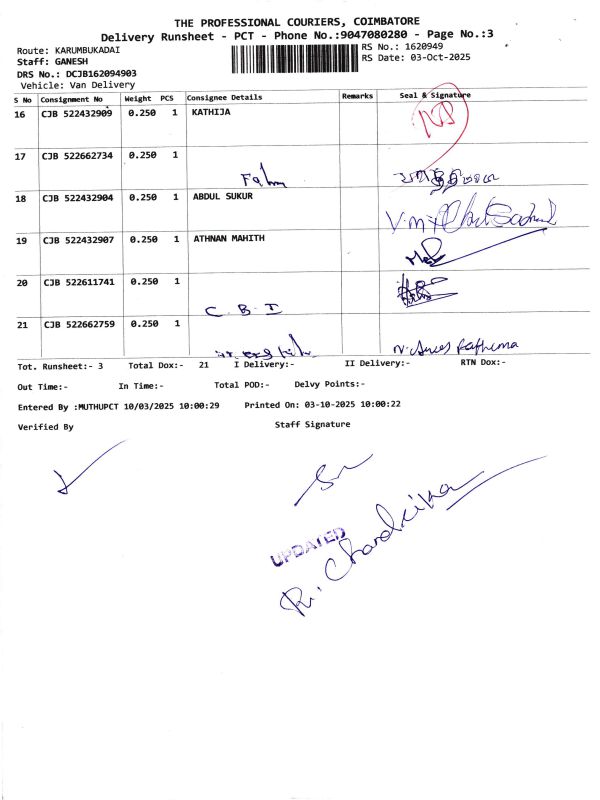 THE PROFESSIONAL COURIERS, COIMBATORE
Delivery Runsheet - PCT - Phone No.:9047080280 - Page No.:3
Route: KARUMBUKADAI
RS No.: 1620949
Staff: GANESH
RS Date: 03-Oct-2025
DRS No.: DCJB162094903
Vehicle: Van Delivery
S No Consignment No Weight PCS Consignee Details Remarks Seal & Signature
16 CJB 522432909 0.250 1 KATHIJA
17 CJB 522662734 0.250 1
18 CJB 522432904 0.250 1 ABDUL SUKUR
19 CJB 522432907 0.250 1 ATHNAN MAHITH
20 CJB 522611741 0.250 1
C. B. I
21 CJB 522662759 0.250 1
Tot. Runsheet:- 3 Total Dox:- 21 I Delivery:- II Delivery:- RTN Dox:-
Out Time:- In Time:- Total POD:- Delvy Points:-
Entered By :MUTHUPCT 10/03/2025 10:00:29 Printed On: 03-10-2025 10:00:22
Verified By Staff Signature
UPDATED
R. Chandrika